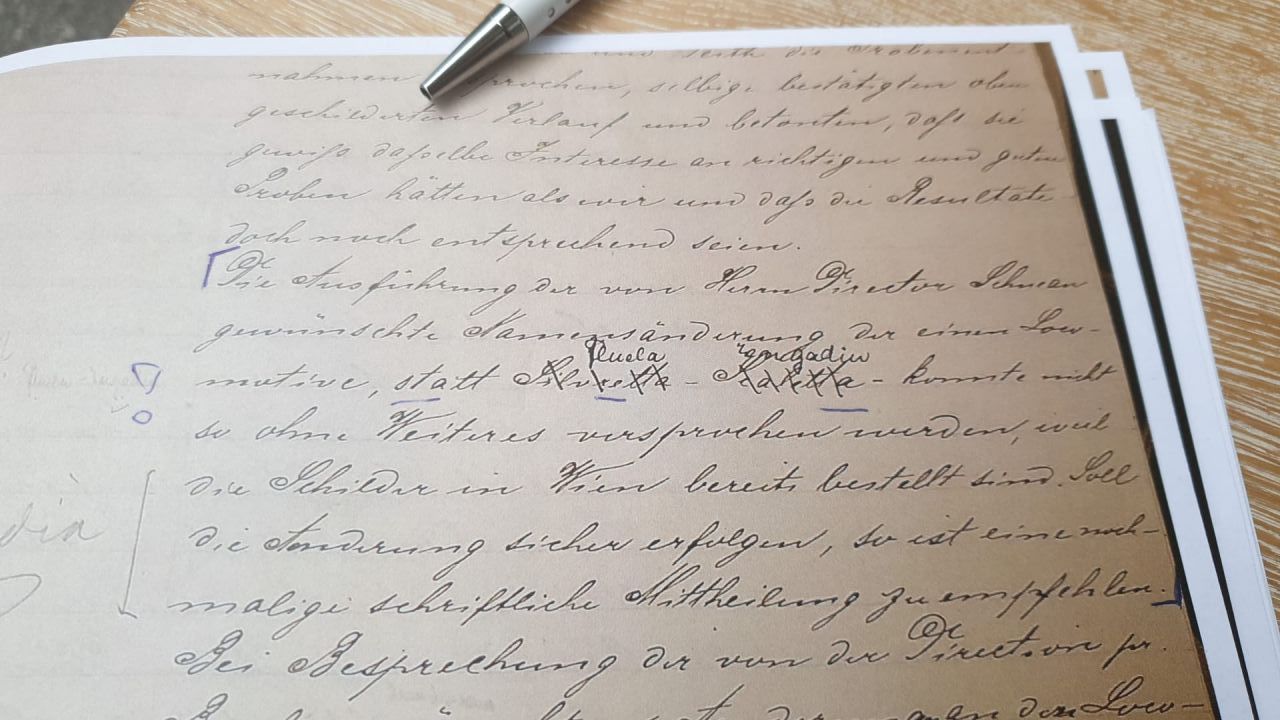 und seith die Probeent-
nahmen sprochen, selbige bestätigten oben
geschilderten Verlauf und betonten, daß sie
gewiß daßelbe Interesse an richtigen und guten
Proben hätten als wir und daß die Resultate
doch noch entsprechend seien.
Die Ausführung der von Herrn Director Schucan
gewünschte Namensänderung der einen Loco-
Fluela
motive, statt Silvretta - Maloja - konnte nicht
so ohne Weiteres versprochen werden, weil
die Schilder in Wien bereits bestellt sind. Soll
die Änderung sicher erfolgen, so ist eine noch-
malige schriftliche Mittheilung zu empfehlen.
Bei Besprechung der von der Direction pr.
man den Loco-